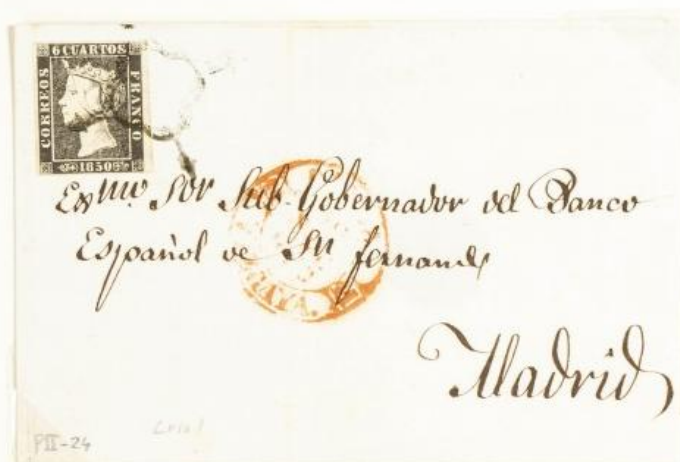 6 CUARTOS
CORREOS
FRANCO
1850
Exmo. Sor Sub-Gobernador del Banco
Español de Sn fernando
Madrid
PII-24